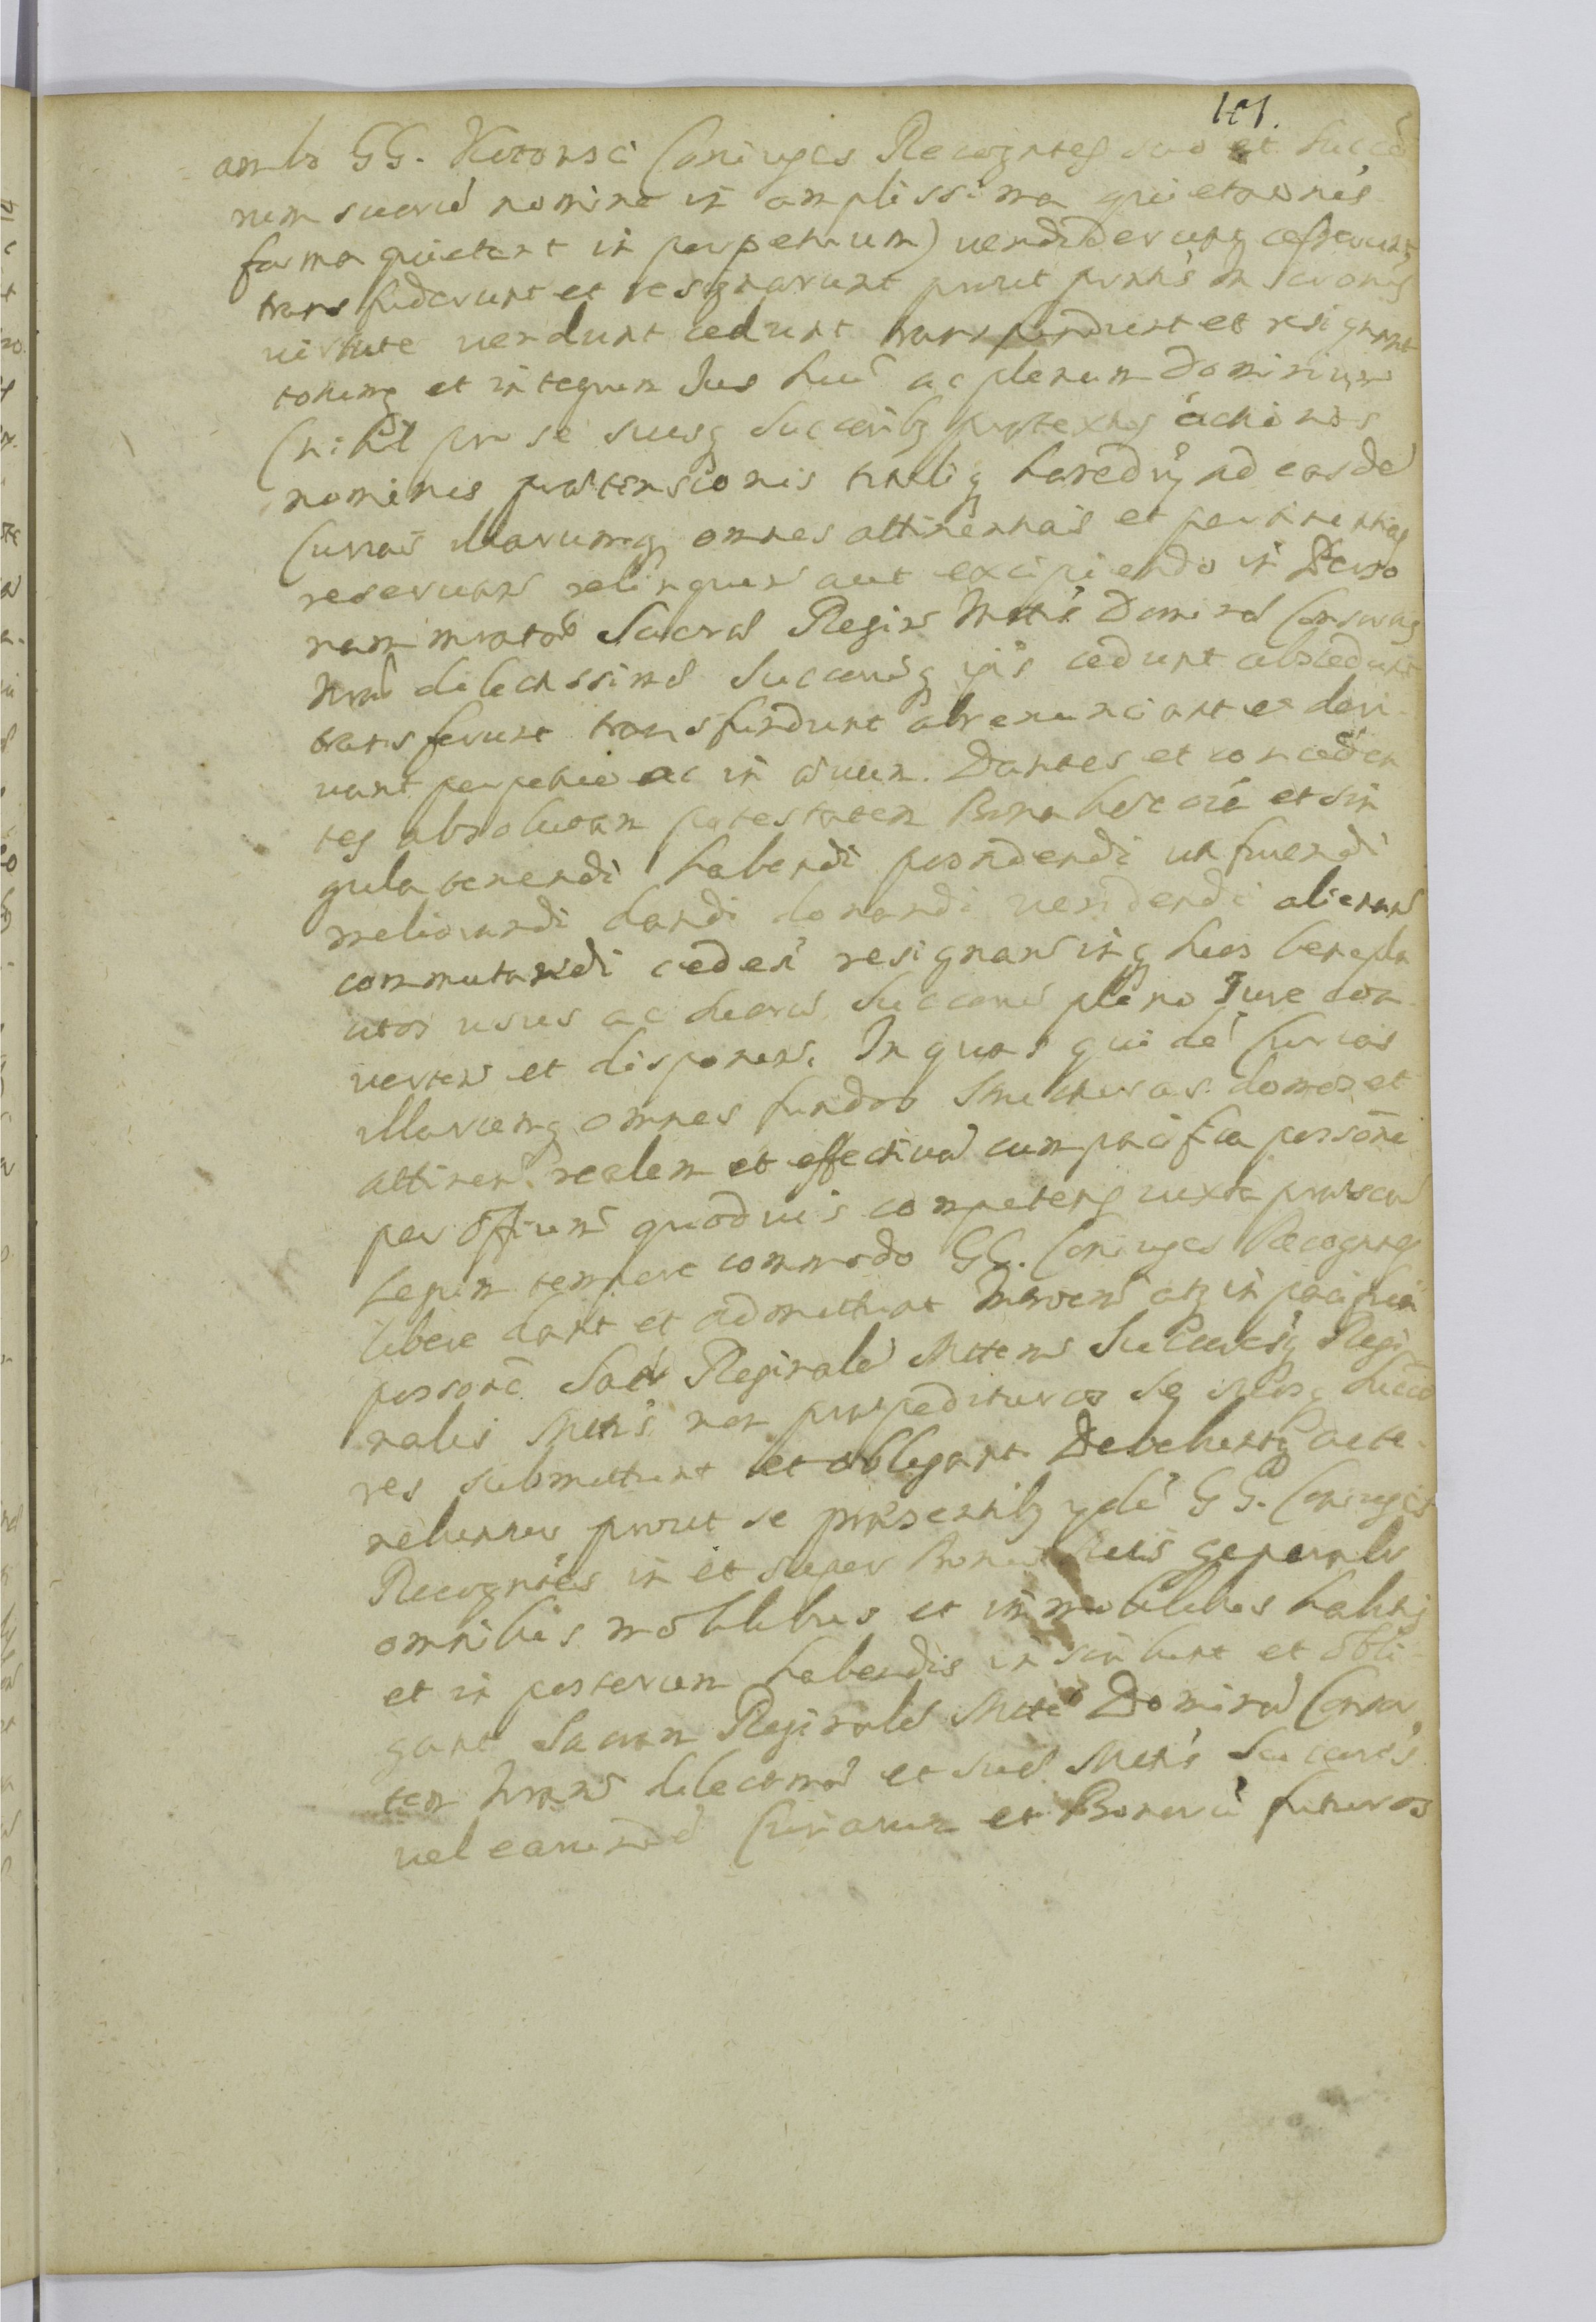 101.
ambo GG. Coniuges Recogntes suo et Succo
rum suorum nomine in amplissima quietaonis
forma quietant in perpetuum) vendiderunt cesserunt
transfuderunt et resignarunt prout pntis Inscronis
virtute vendunt cedunt transfundunt et resignant
totumq et integrum Jus suu ac plenum Dominium
(nihil pro se suisq Succoribq praetextus actionis
nominis praetensionis haeredu ad easde
Curias illarumq omnes attinentias et pertinentias
reservan relinquen aut excipiendo in Perso
nam mratae Sacrae Regiae Mttis Dominae Consortis
Nrae dilectissimae Succorisq ipsis cedunt abscedunt
transferunt transfundunt abrenunciant et deri
vant perpetue ac in aevum. Dantes et conceden
tes absolutam potestatem Bona haec oia et sin
gula tenendi habendi possidendi utifruendi
meliorandi dandi donandi vendendi alienan
commutandi cedeni resignan inq suos benepla
citos usus ac suorum Succorum pleno Jure con
verten et disponen. In quas quide Curias
illarumq omnes fundos Structuras domos et
attinen. realem et effectivam cum pacifica possone
per Offium quodvis competens iuxta praescri
tempore commodo GG. Coniuges Recogntes
libere dant et admittunt atq in pacifica
possone Sacr Reginale Mttem Regi
nalis Mttis non praepedituros se suosq Succo
res submittunt et obligant. Debebuntq
nebuntur prout se praesentibq yde GG. Coniuges
Recogntes in et super Bonis suis generalr
omnibus mobilibus et immobilibus habitis
et in posterum habendis inscribunt et obli
gant Sacram Reginalem Mttem Dominam Consor
tem Nram dilectmam et suae Mttis Succores
vel earunde Curiarum et Bonoru futuros